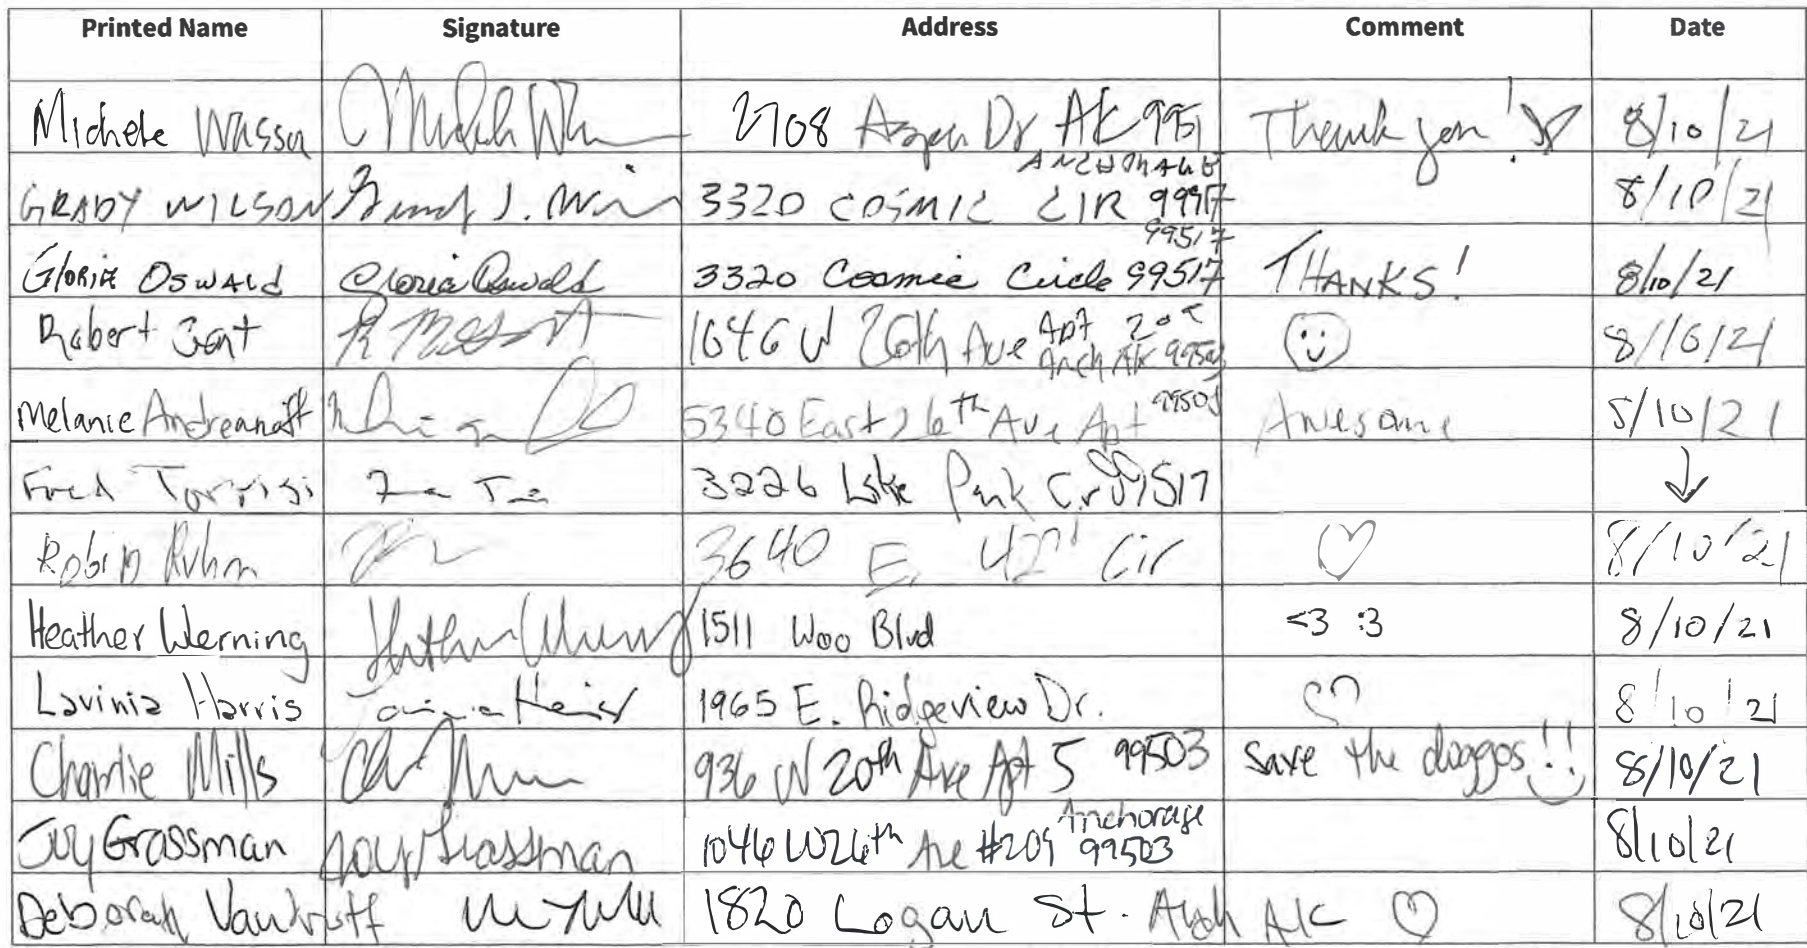 Printed Name Signature Address Comment Date
Michele 2708 Aspen Dr AK 9951 Thank you! 8/10/21
ANCHORAGE
GRADY WILSON 3320 COSMIC CIR 8/10/21
99517
Gloria OSWALD Gloria Oswald 3320 Cosmic Circle 99517 THANKS! 8/10/21
Robert 1046 W 26th Ave Apt 8/10/21
Anch AK 99503
Melanie Andreanoff 5340 East 26th Ave Apt Awesome 8/10/21
Fred Torrisi 3226 Lake Park Cir 99517 ↓
Robin 3640 E. 42nd Cir ♡ 8/10/21
Heather Werning 1511 Woo Blvd <3 :3 8/10/21
Lavinia Harris 1965 E. Ridgeview Dr. ♡ 8/10/21
Charlie Mills 936 W 20th Ave Apt 5 99503 save the doggos!! 8/10/21
Anchorage
Joy Grassman Joy Grassman 1046 W 26th Ave #209 99503 8/10/21
Deborah 1820 Logan St. Anch AK ♡ 8/10/21